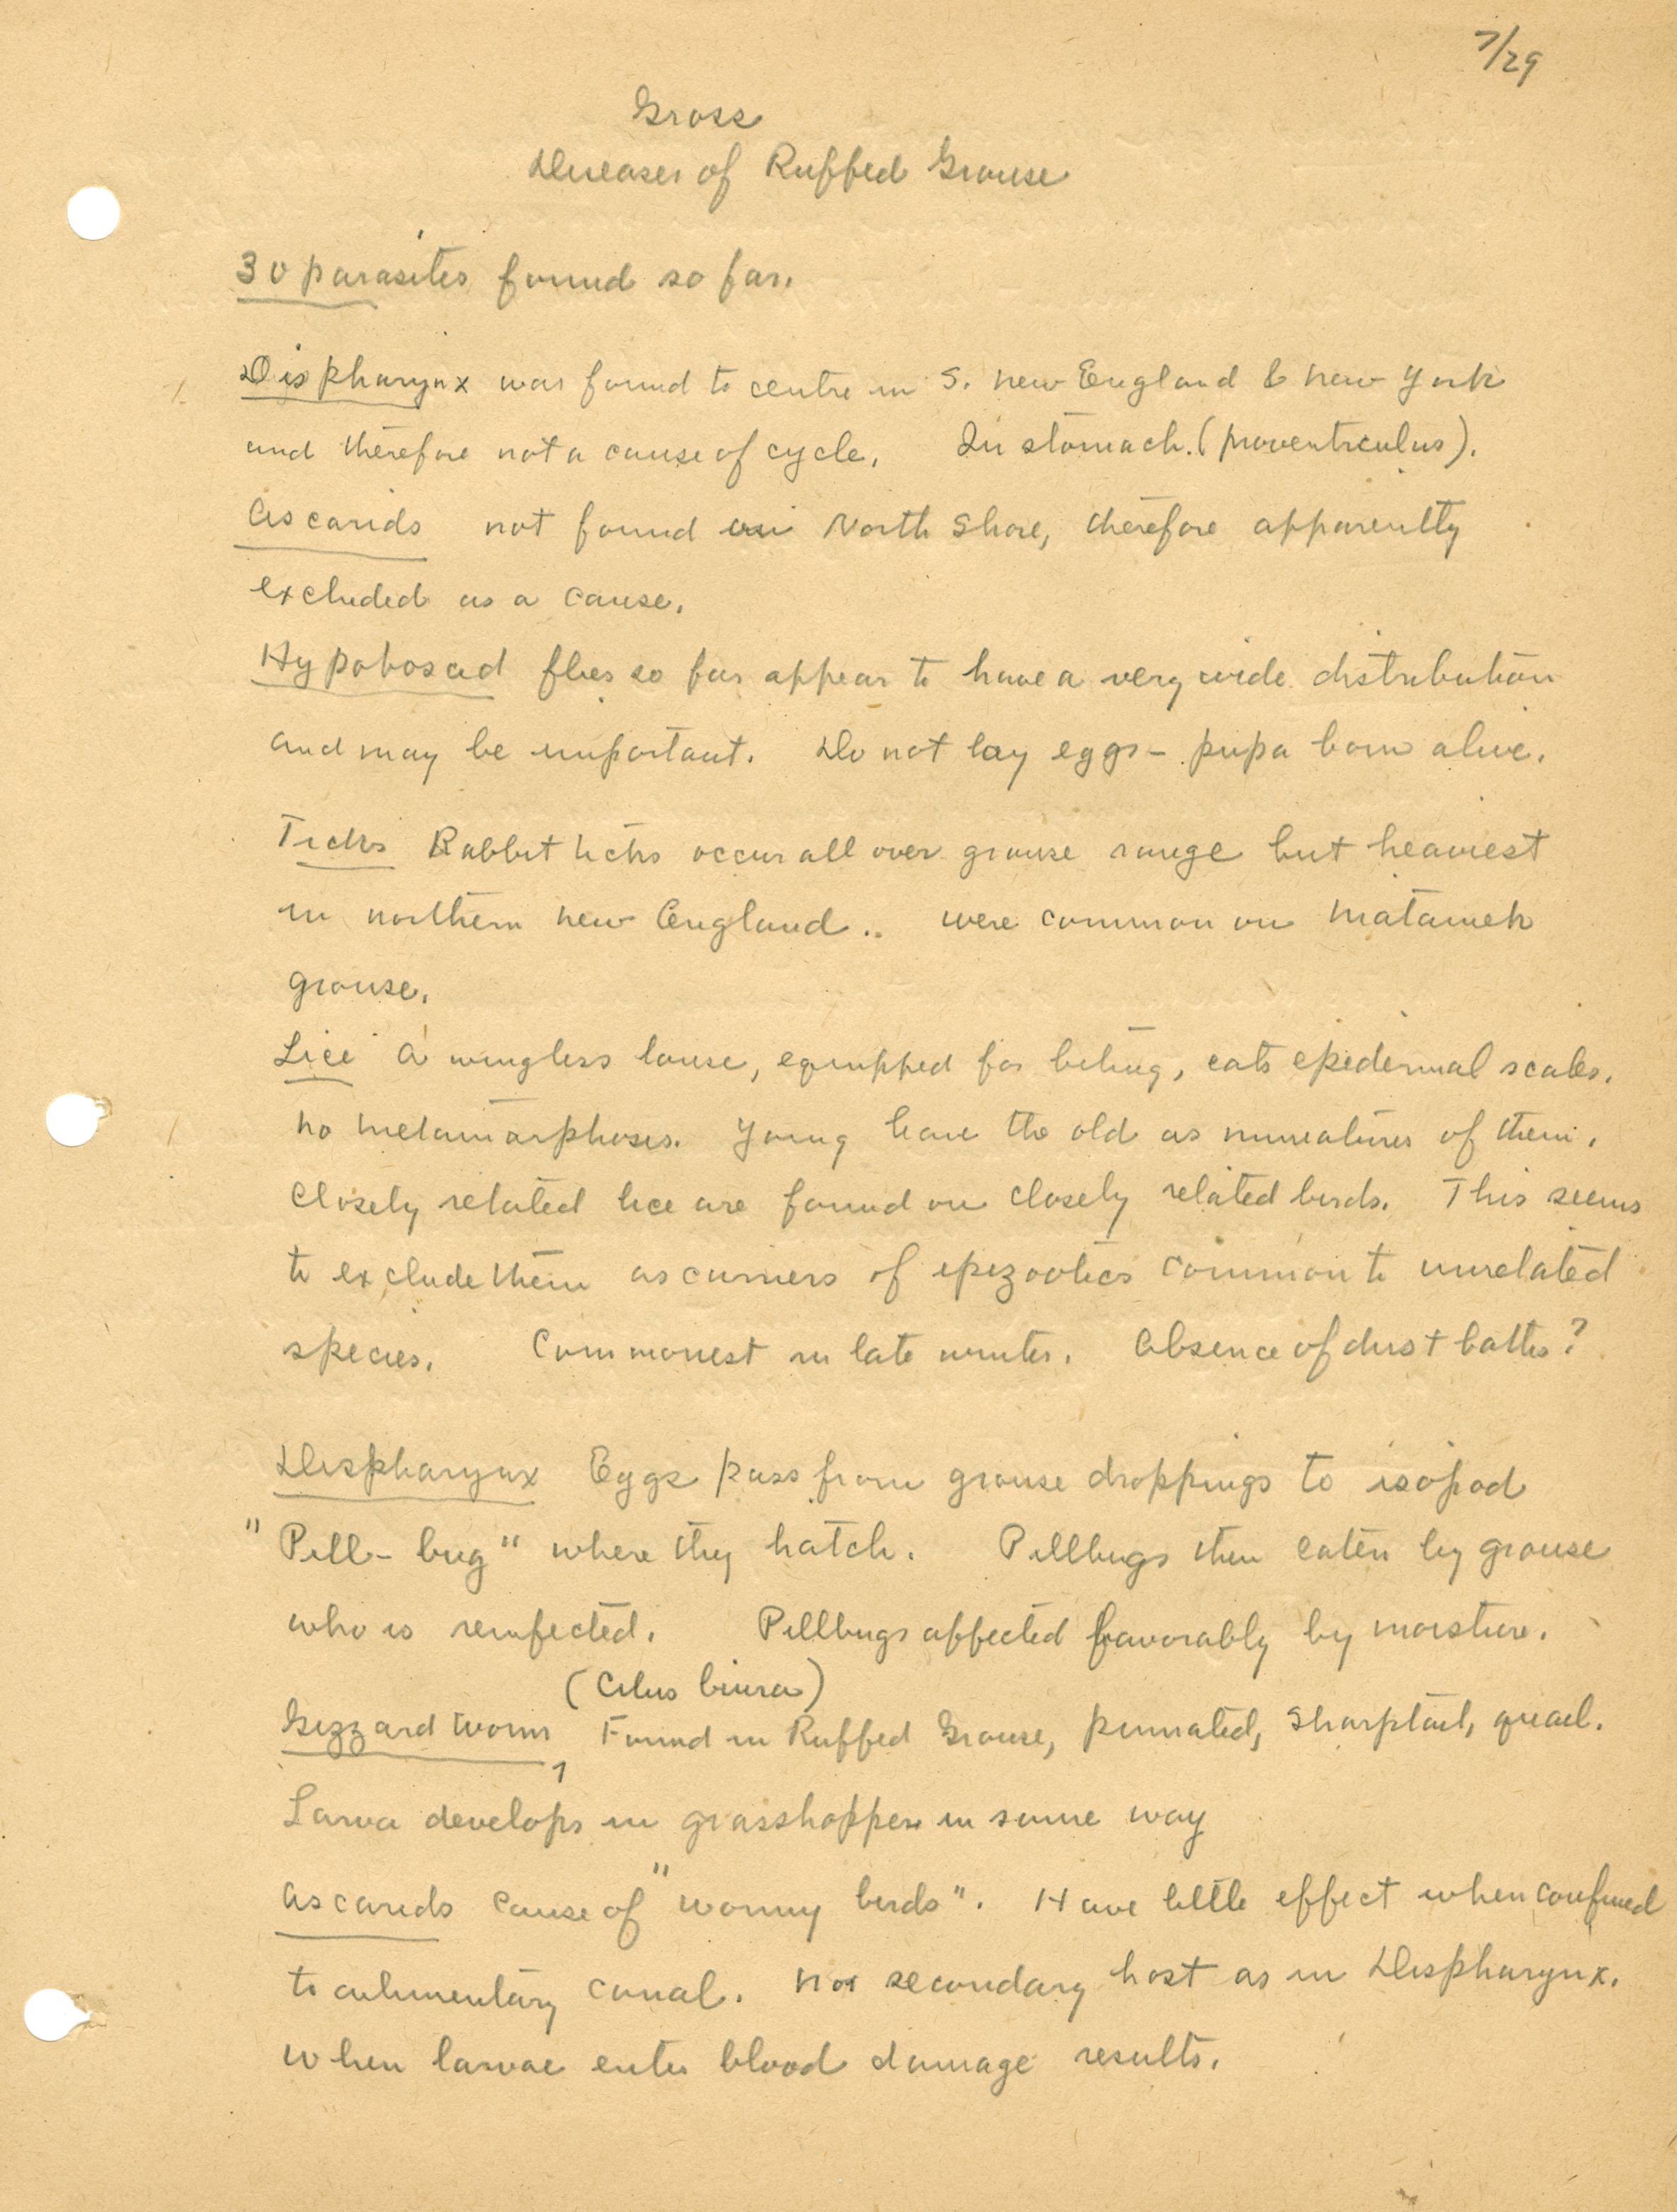 7/29
Gross
Diseases of Ruffed Grouse
30 parasites found so far.
Dispharynx was found to centre in S. New England & New York
and therefore not a cause of cycle. In stomach. (proventriculus).
Ascarids not found on North Shore, therefore apparently
excluded as a cause.
Hypoboscid flies so far appear to have a very wide distribution
and may be important. Do not lay eggs - pupa born alive.
Ticks Rabbit ticks occur all over grouse range but heaviest
in northern New England.. were common on Matamek
grouse.
Lice A wingless louse, equipped for biting, eats epidermal scales.
No metamorphosis. Young leave the old as miniatures of them.
Closely related lice are found on closely related birds. This seems
to exclude them as carriers of epizootics common to unrelated
species. Commonest in late winter. Absence of dust baths?
Dispharynx Eggs pass from grouse droppings to isopod
"Pill-bug" where they hatch. Pillbugs then eaten by grouse
who is reinfected. Pillbugs affected favorably by moisture.
Gizzard worm (Cilus biura) Found in Ruffed Grouse, pinnated, sharptail, quail.
Larva develops in grasshopper in same way
Ascarids cause of "wormy birds". Have little effect when confined
to alimentary canal. No secondary host as in Dispharynx.
When larvae enter blood damage results.